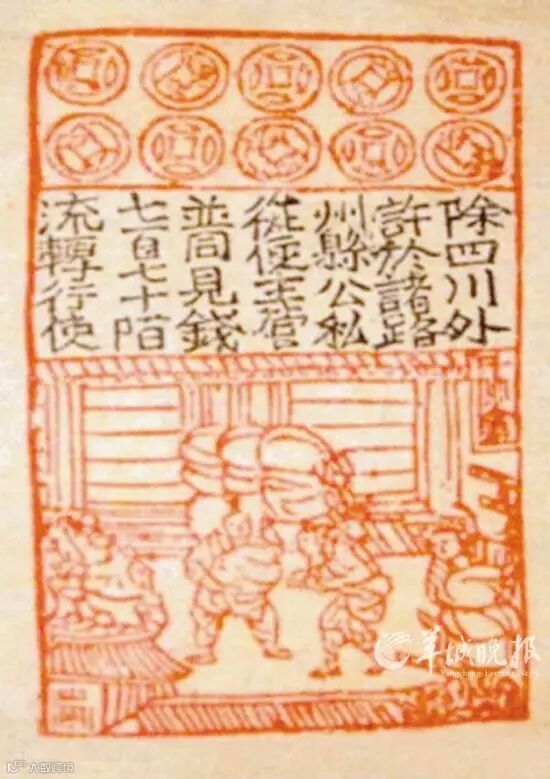 除四川外
許於諸路
州縣公私
從便主管
並同見錢
七百七十陌
流轉行使
羊城晚报
Yangcheng Evening News
大数跨境